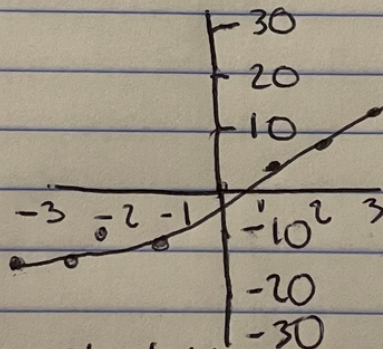 30
20
10
-3 -2 -1 1 2 3
-10
-20
-30